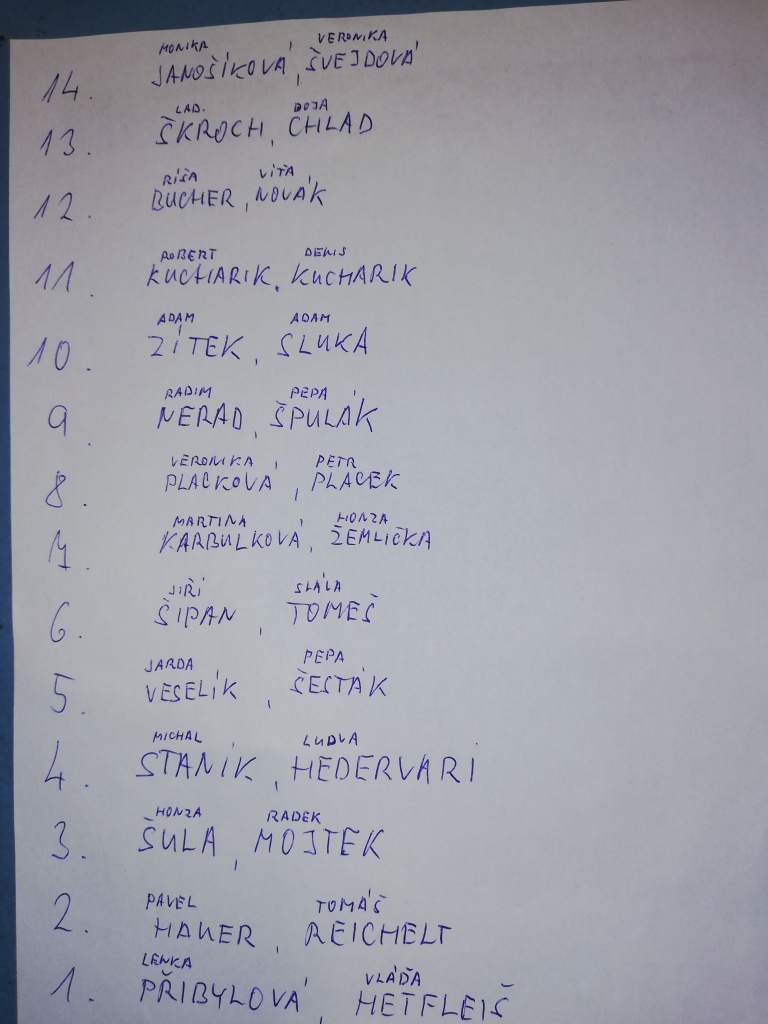 MONIKA VERONIKA
14. JANOŠÍKOVÁ, ŠVEJDOVÁ
LAD. BOJA
13. ŠKROCH, CHLAD
RÍŠA VÍŤA
12. BUCHER, NOVÁK
ROBERT DENIS
11. KUCHARIK, KUCHARIK
ADAM ADAM
10. ZÍTEK, SLUKA
RADIM PEPA
9. NERAD, ŠPULÁK
VERONIKA PETR
8. PLACKOVÁ, PLACEK
MARTINA HONZA
7. KARBULKOVÁ, ŽEMLIČKA
JIŘÍ SLÁĹA
6. ŠIPAN, TOMEŠ
JARDA PEPA
5. VESELÍK, ŠESTÁK
MICHAL LUDVA
4. STANÍK, HEDERVARI
HONZA RADEK
3. ŠULA, MOJTEK
PAVEL TOMÁŠ
2. HAUER, REICHELT
LENKA VLÁĎA
1. PŘIBYLOVÁ, HETFLEIŠ